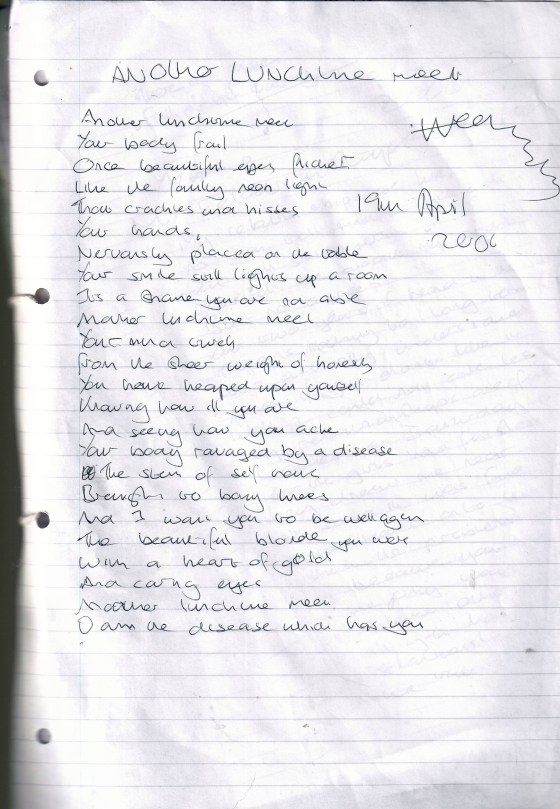 ANOTHER LUNCHTIME meet
Another lunchtime meet
Your body frail
Once beautiful eyes flicker
Like the faulty neon light
That crackles and hisses
19th April
2006
Your hands,
Nervously placed on the table
Your smile still lights up a room
Its a shame you are not able
Another lunchtime meet
Your mind
From the sheer weight of honesty
You have heaped upon yourself
Knowing how ill you are
And seeing how you ache
Your body ravaged by a disease
The of self
Brought to bony knees
And I want you to be well again
The beautiful blonde you were
With a heart of gold
And caring eyes
Another lunchtime meet
Damn the disease which has you